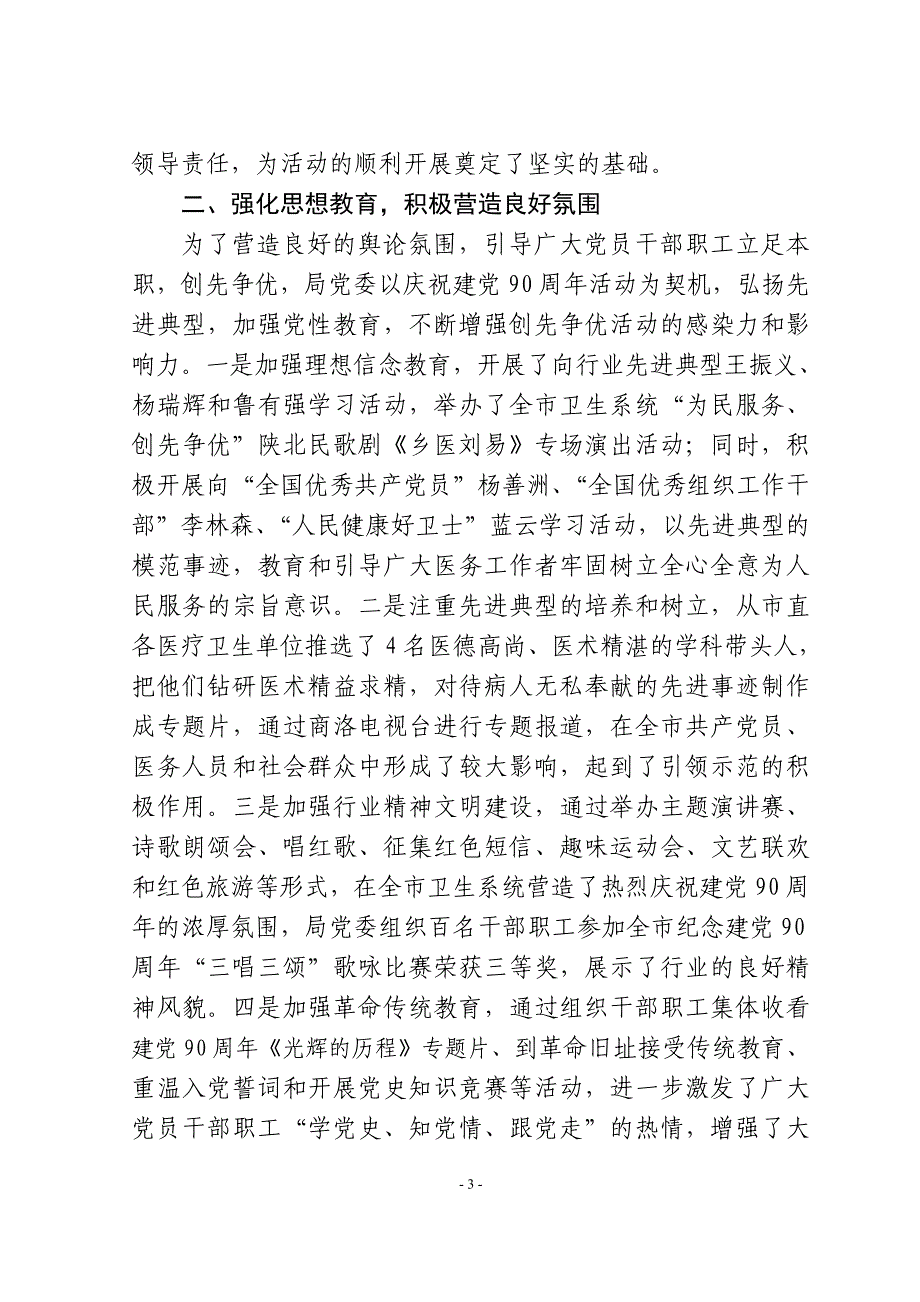 领导责任，为活动的顺利开展奠定了坚实的基础。
二、强化思想教育，积极营造良好氛围
为了营造良好的舆论氛围，引导广大党员干部职工立足本
职，创先争优，局党委以庆祝建党 90 周年活动为契机，弘扬先
进典型，加强党性教育，不断增强创先争优活动的感染力和影
响力。一是加强理想信念教育，开展了向行业先进典型王振义、
杨瑞辉和鲁有强学习活动，举办了全市卫生系统“为民服务、
创先争优”陕北民歌剧《乡医刘易》专场演出活动；同时，积
极开展向“全国优秀共产党员”杨善洲、“全国优秀组织工作干
部”李林森、“人民健康好卫士”蓝云学习活动，以先进典型的
模范事迹，教育和引导广大医务工作者牢固树立全心全意为人
民服务的宗旨意识。二是注重先进典型的培养和树立，从市直
各医疗卫生单位推选了 4 名医德高尚、医术精湛的学科带头人，
把他们钻研医术精益求精，对待病人无私奉献的先进事迹制作
成专题片，通过商洛电视台进行专题报道，在全市共产党员、
医务人员和社会群众中形成了较大影响，起到了引领示范的积
极作用。三是加强行业精神文明建设，通过举办主题演讲赛、
诗歌朗颂会、唱红歌、征集红色短信、趣味运动会、文艺联欢
和红色旅游等形式，在全市卫生系统营造了热烈庆祝建党 90 周
年的浓厚氛围，局党委组织百名干部职工参加全市纪念建党 90
周年“三唱三颂”歌咏比赛荣获三等奖，展示了行业的良好精
神风貌。四是加强革命传统教育，通过组织干部职工集体收看
建党 90 周年《光辉的历程》专题片、到革命旧址接受传统教育、
重温入党誓词和开展党史知识竞赛等活动，进一步激发了广大
党员干部职工“学党史、知党情、跟党走”的热情，增强了大
- 3 -